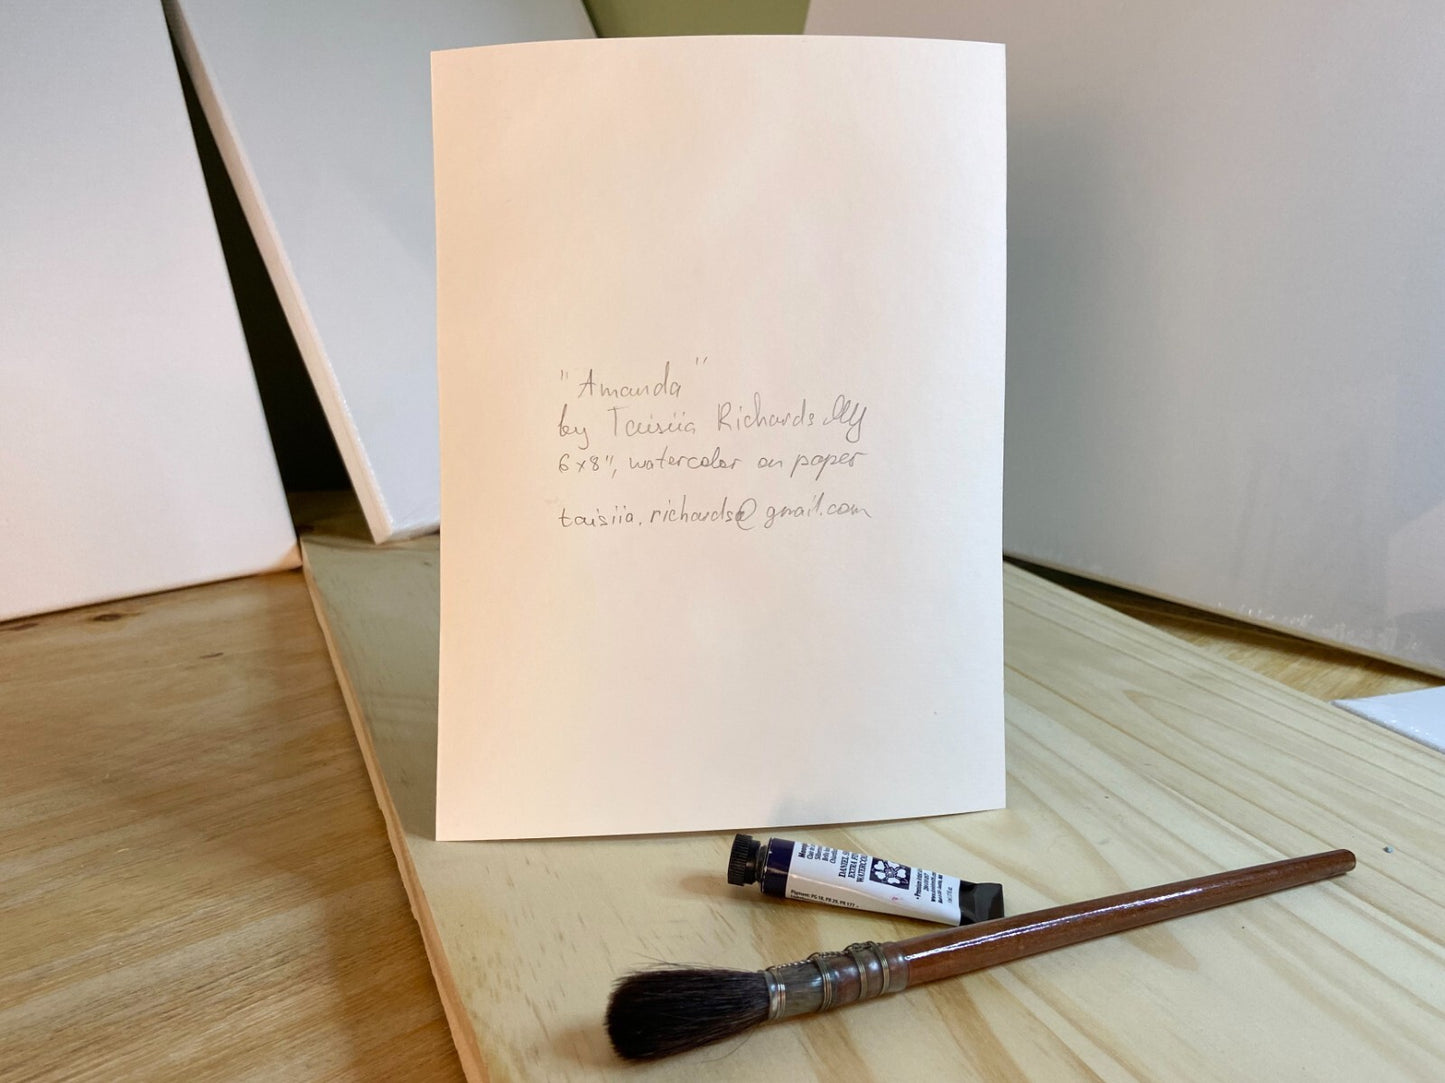 "Amanda"
by Taisiia Richards
6x8", watercolor on paper
taisiia.richards@gmail.com
DANIEL S
EXTRA FI
WATERCOLO